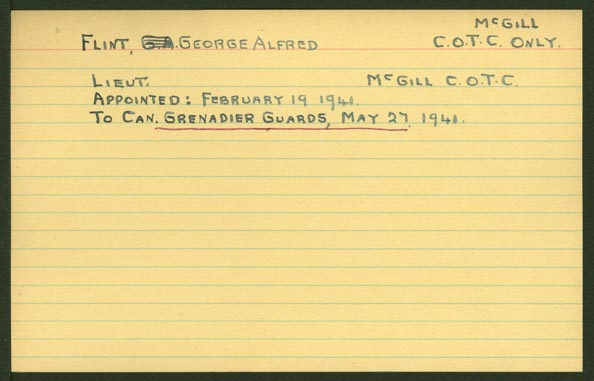 McGILL
FLINT, G.A. GEORGE ALFRED C.O.T.C. ONLY.
LIEUT. McGILL C.O.T.C.
APPOINTED: FEBRUARY 19 1941.
TO CAN. GRENADIER GUARDS, MAY 27, 1941.